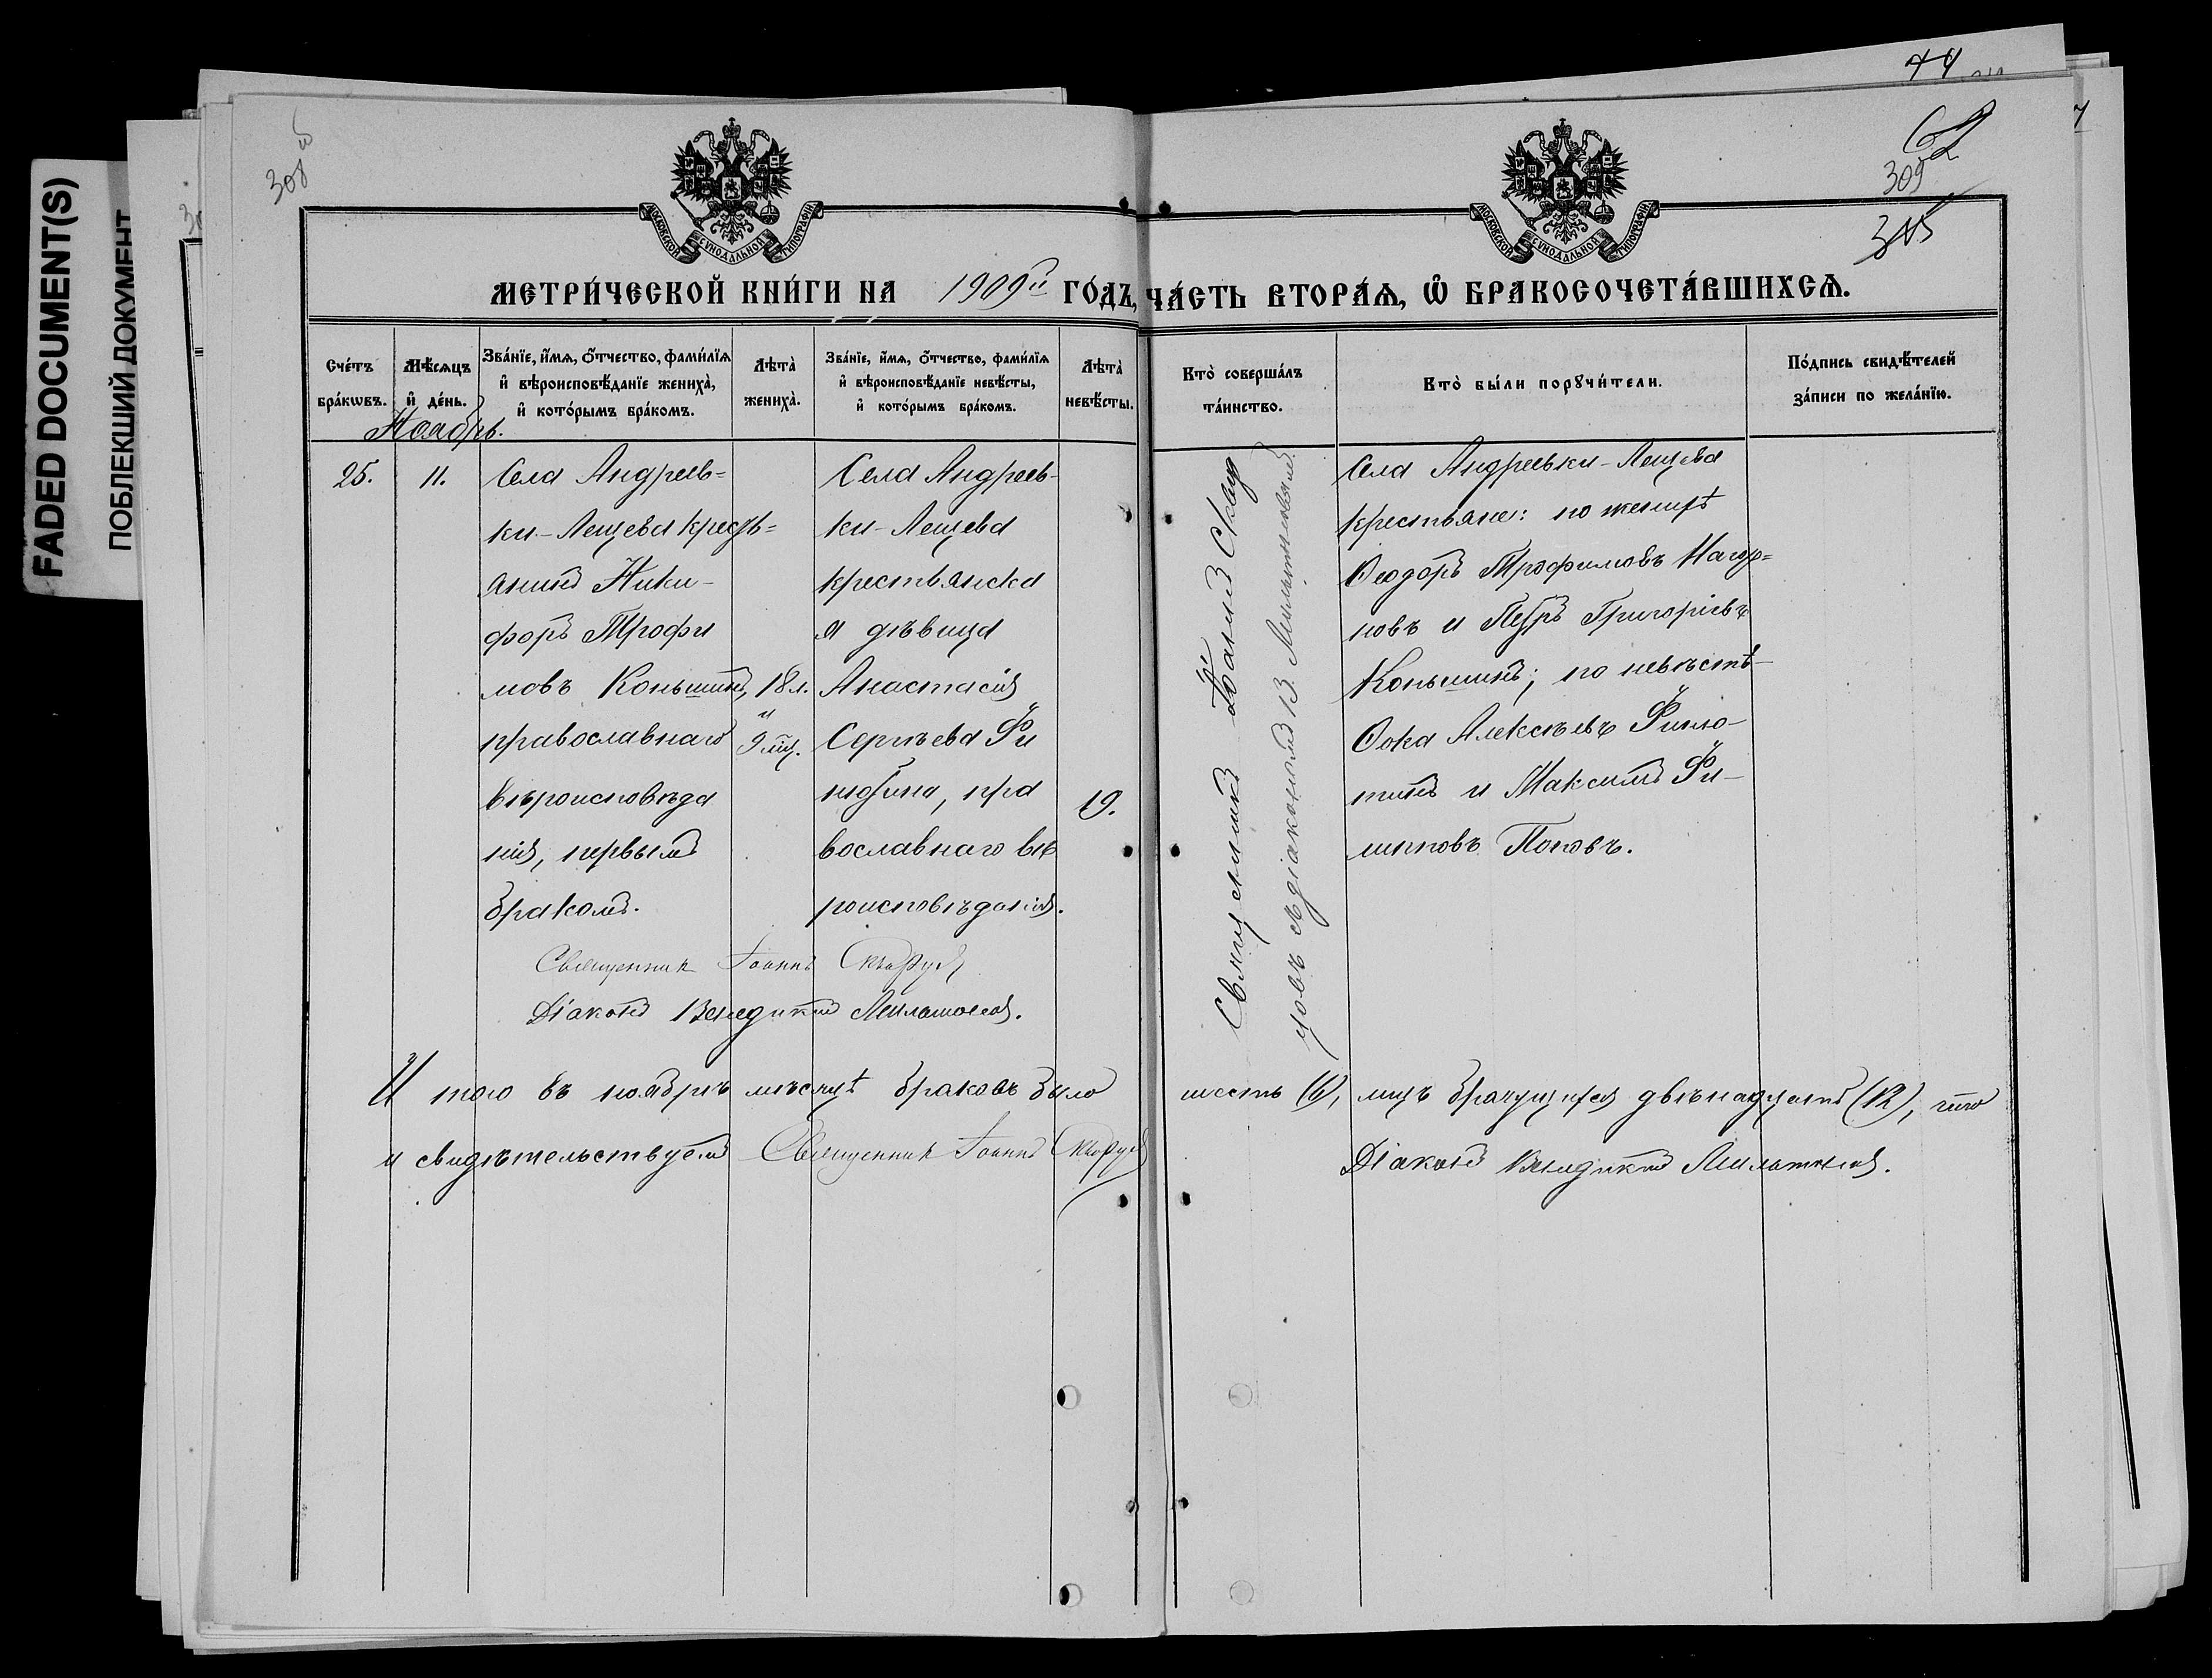 FADED DOCUMENT(S)
ПОБЛЕКШИЙ ДОКУМЕНТ
44
308
309
МОСКОВСКОЙ СѴНОДАЛЬНОЙ ТИПОГРАФІИ
МОСКОВСКОЙ СѴНОДАЛЬНОЙ ТИПОГРАФІИ
МЕТРИ́ЧЕСКОЙ КНИ́ГИ НА 1909й ГО́ДЪ, ЧА́СТЬ ВТОРА́Ѧ, Ѽ БРАКОСОЧЕТА́ВШИХСѦ.
Сче́тъ бра́кѡвъ.
Мѣ́сѧцъ и҆ де́нь.
Зва́нїе, и҆́мѧ, ѻ҆́тчество, фами́лїѧ и҆ вѣроисповѣ́данїе жениха̀, и҆ кото́рымъ бра́комъ.
Лѣта̀ жениха̀.
Зва́нїе, и҆́мѧ, ѻ҆́тчество, фами́лїѧ и҆ вѣроисповѣ́данїе невѣ́сты, и҆ кото́рымъ бра́комъ.
Лѣта̀ невѣ́сты.
Кто̀ соверша́лъ та́инство.
Кто̀ бы́ли порꙋчи́тели.
По́дпись свидѣ́телей за́писи по жела́нїю.
Ноябрь.
25.
11.
Села Андреев=
ки-Лещева кресть=
янинъ Ники-
форъ Трофи
мовъ Коньшинъ,
православнаго
вѣроисповѣда
нія, первымъ
бракомъ.
18 л.
и
9 мц.
Села Андреев-
ки-Лещева
крестьянска
я дѣвица
Анастасія
Сергѣева Фи
нютина, пра
вославнаго вѣ
роисповѣданія.
19.
Священникъ Іоаннъ
съ діакономъ В.
Села Андреевки-Лещева
крестьяне: по женихѣ
Ѳеодоръ Трофимовъ Нагор=
новъ и Петръ Григоріевъ
Коньшинъ; по невѣстѣ-
Ѳока Алексѣевъ Финю-
тинъ и Максимъ Фи-
липповъ Поповъ.
Священник Іоаннъ
Діаконъ Венедиктъ
И того въ ноябрѣ мѣсяцѣ браковъ было шесть (6), лицъ брачущихся двѣнадцать (12), что
и свидѣтельствуемъ Священник Іоаннъ Діаконъ Венедиктъ